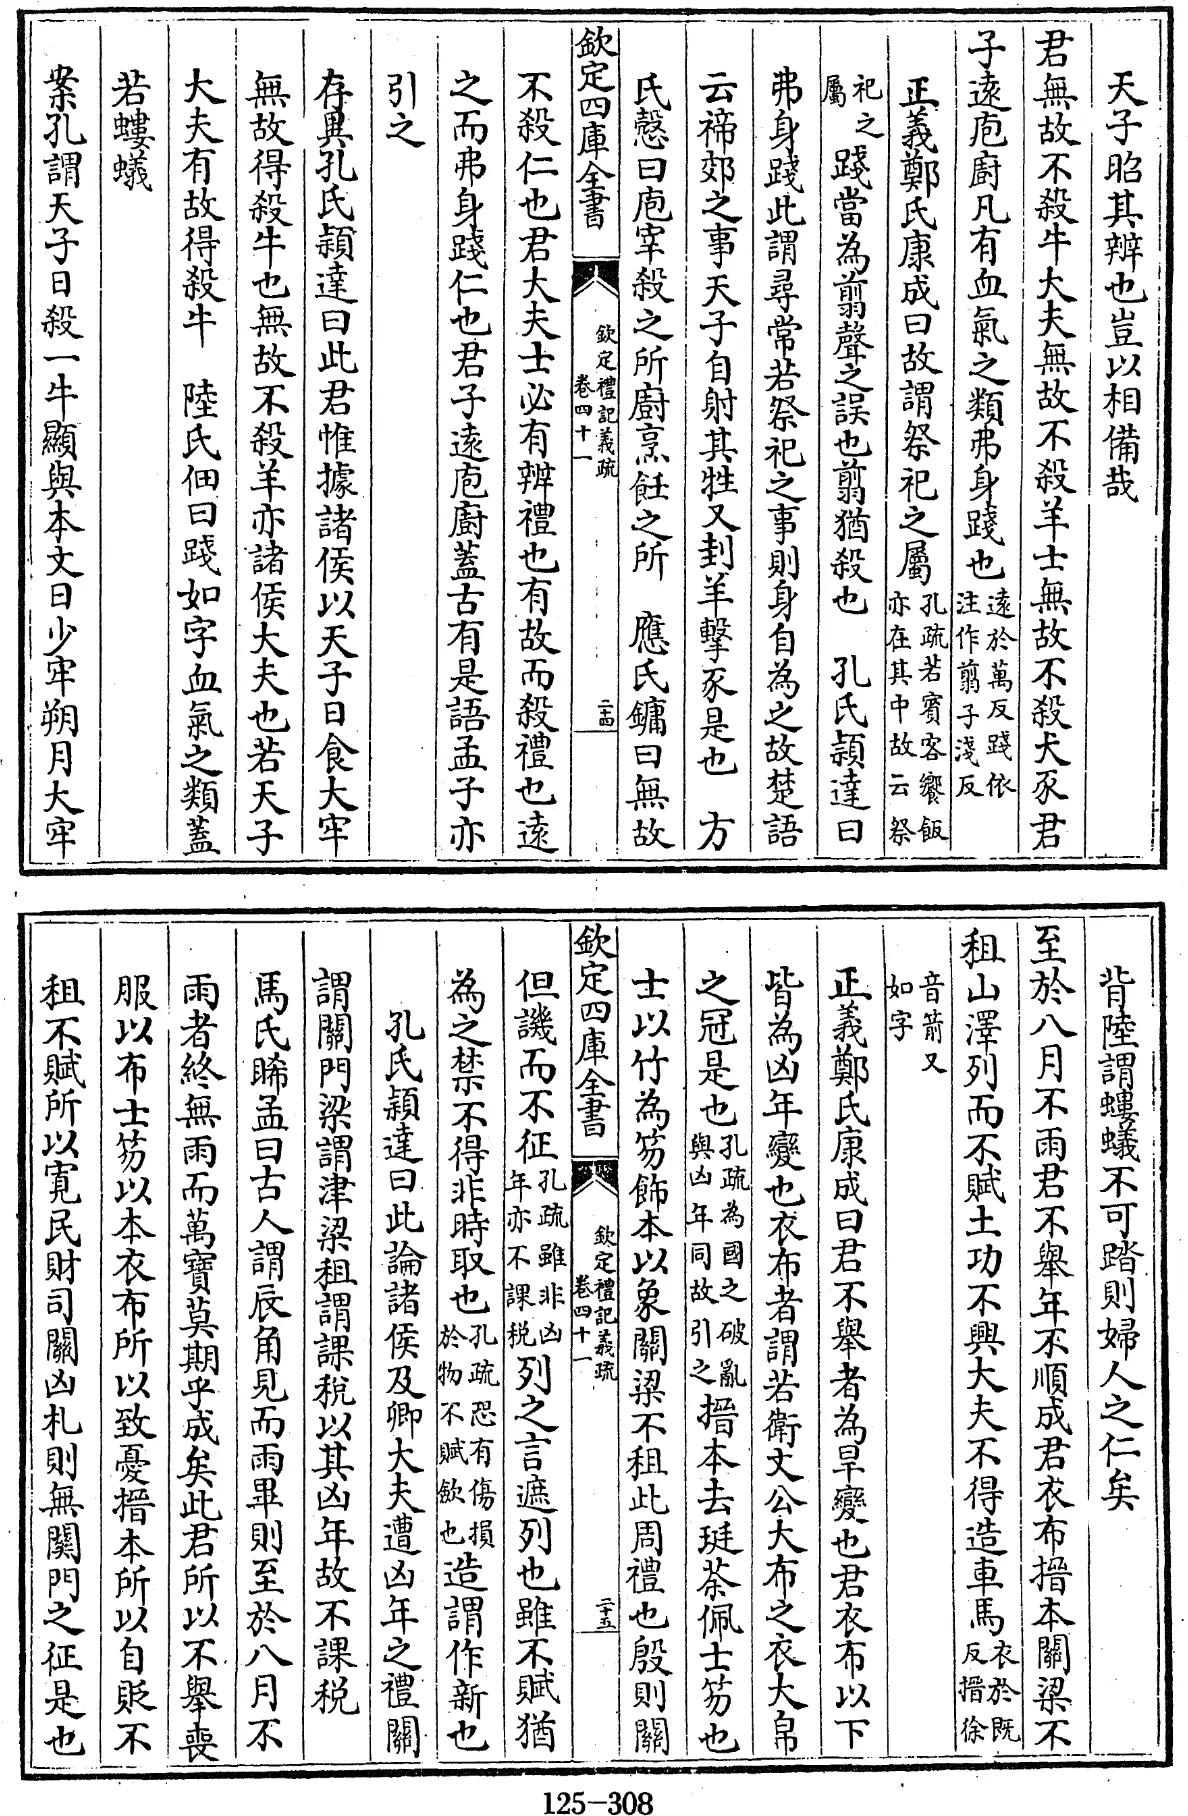 天子昭其辨也豈以相備哉
君無故不殺牛大夫無故不殺羊士無故不殺犬豕君
子遠庖廚凡有血氣之類弗身踐也遠於萬反踐依注作翦子淺反
正義鄭氏康成曰故謂祭祀之屬孔疏若賓客饗飯亦在其中故云祭
祀之屬踐當為翦聲之誤也翦猶殺也　孔氏穎達曰
弗身踐此謂尋常若祭祀之事則身自為之故楚語
云禘郊之事天子自射其牲又刲羊擊豕是也　方
氏慤曰庖宰殺之所廚烹飪之所　應氏鏞曰無故
欽定四庫全書
欽定禮記義疏
卷四十一
二十四
不殺仁也君大夫士必有辨禮也有故而殺禮也遠
之而弗身踐仁也君子遠庖廚蓋古有是語孟子亦
引之
存異孔氏穎達曰此君惟據諸侯以天子日食大牢
無故得殺牛也無故不殺羊亦諸侯大夫也若天子
大夫有故得殺牛　陸氏佃曰踐如字血氣之類蓋
若螻蟻
案孔謂天子日殺一牛顯與本文日少牢朔月大牢
背陸謂螻蟻不可踏則婦人之仁矣
至於八月不雨君不舉年不順成君衣布搢本關梁不
租山澤列而不賦土功不興大夫不得造車馬衣於既反搢徐
音箭又如字
正義鄭氏康成曰君不舉者為旱變也君衣布以下
皆為凶年變也衣布者謂若衛文公大布之衣大帛
之冠是也孔疏為國之破亂與凶年同故引之搢本去珽荼佩士笏也
士以竹為笏飾本以象關梁不租此周禮也殷則關
欽定四庫全書
欽定禮記義疏
卷四十一
二十五
但譏而不征孔疏雖非凶年亦不課稅列之言遮列也雖不賦猶
為之禁不得非時取也孔疏恐有傷損於物不賦斂也造謂作新也
孔氏穎達曰此論諸侯及卿大夫遭凶年之禮關
謂關門梁謂津梁租謂課稅以其凶年故不課稅
馬氏睎孟曰古人謂辰角見而雨畢則至於八月不
雨者終無雨而萬寶莫期乎成矣此君所以不舉喪
服以布士笏以本衣布所以致憂搢本所以自貶不
租不賦所以寬民財司關凶札則無關門之征是也
125-308